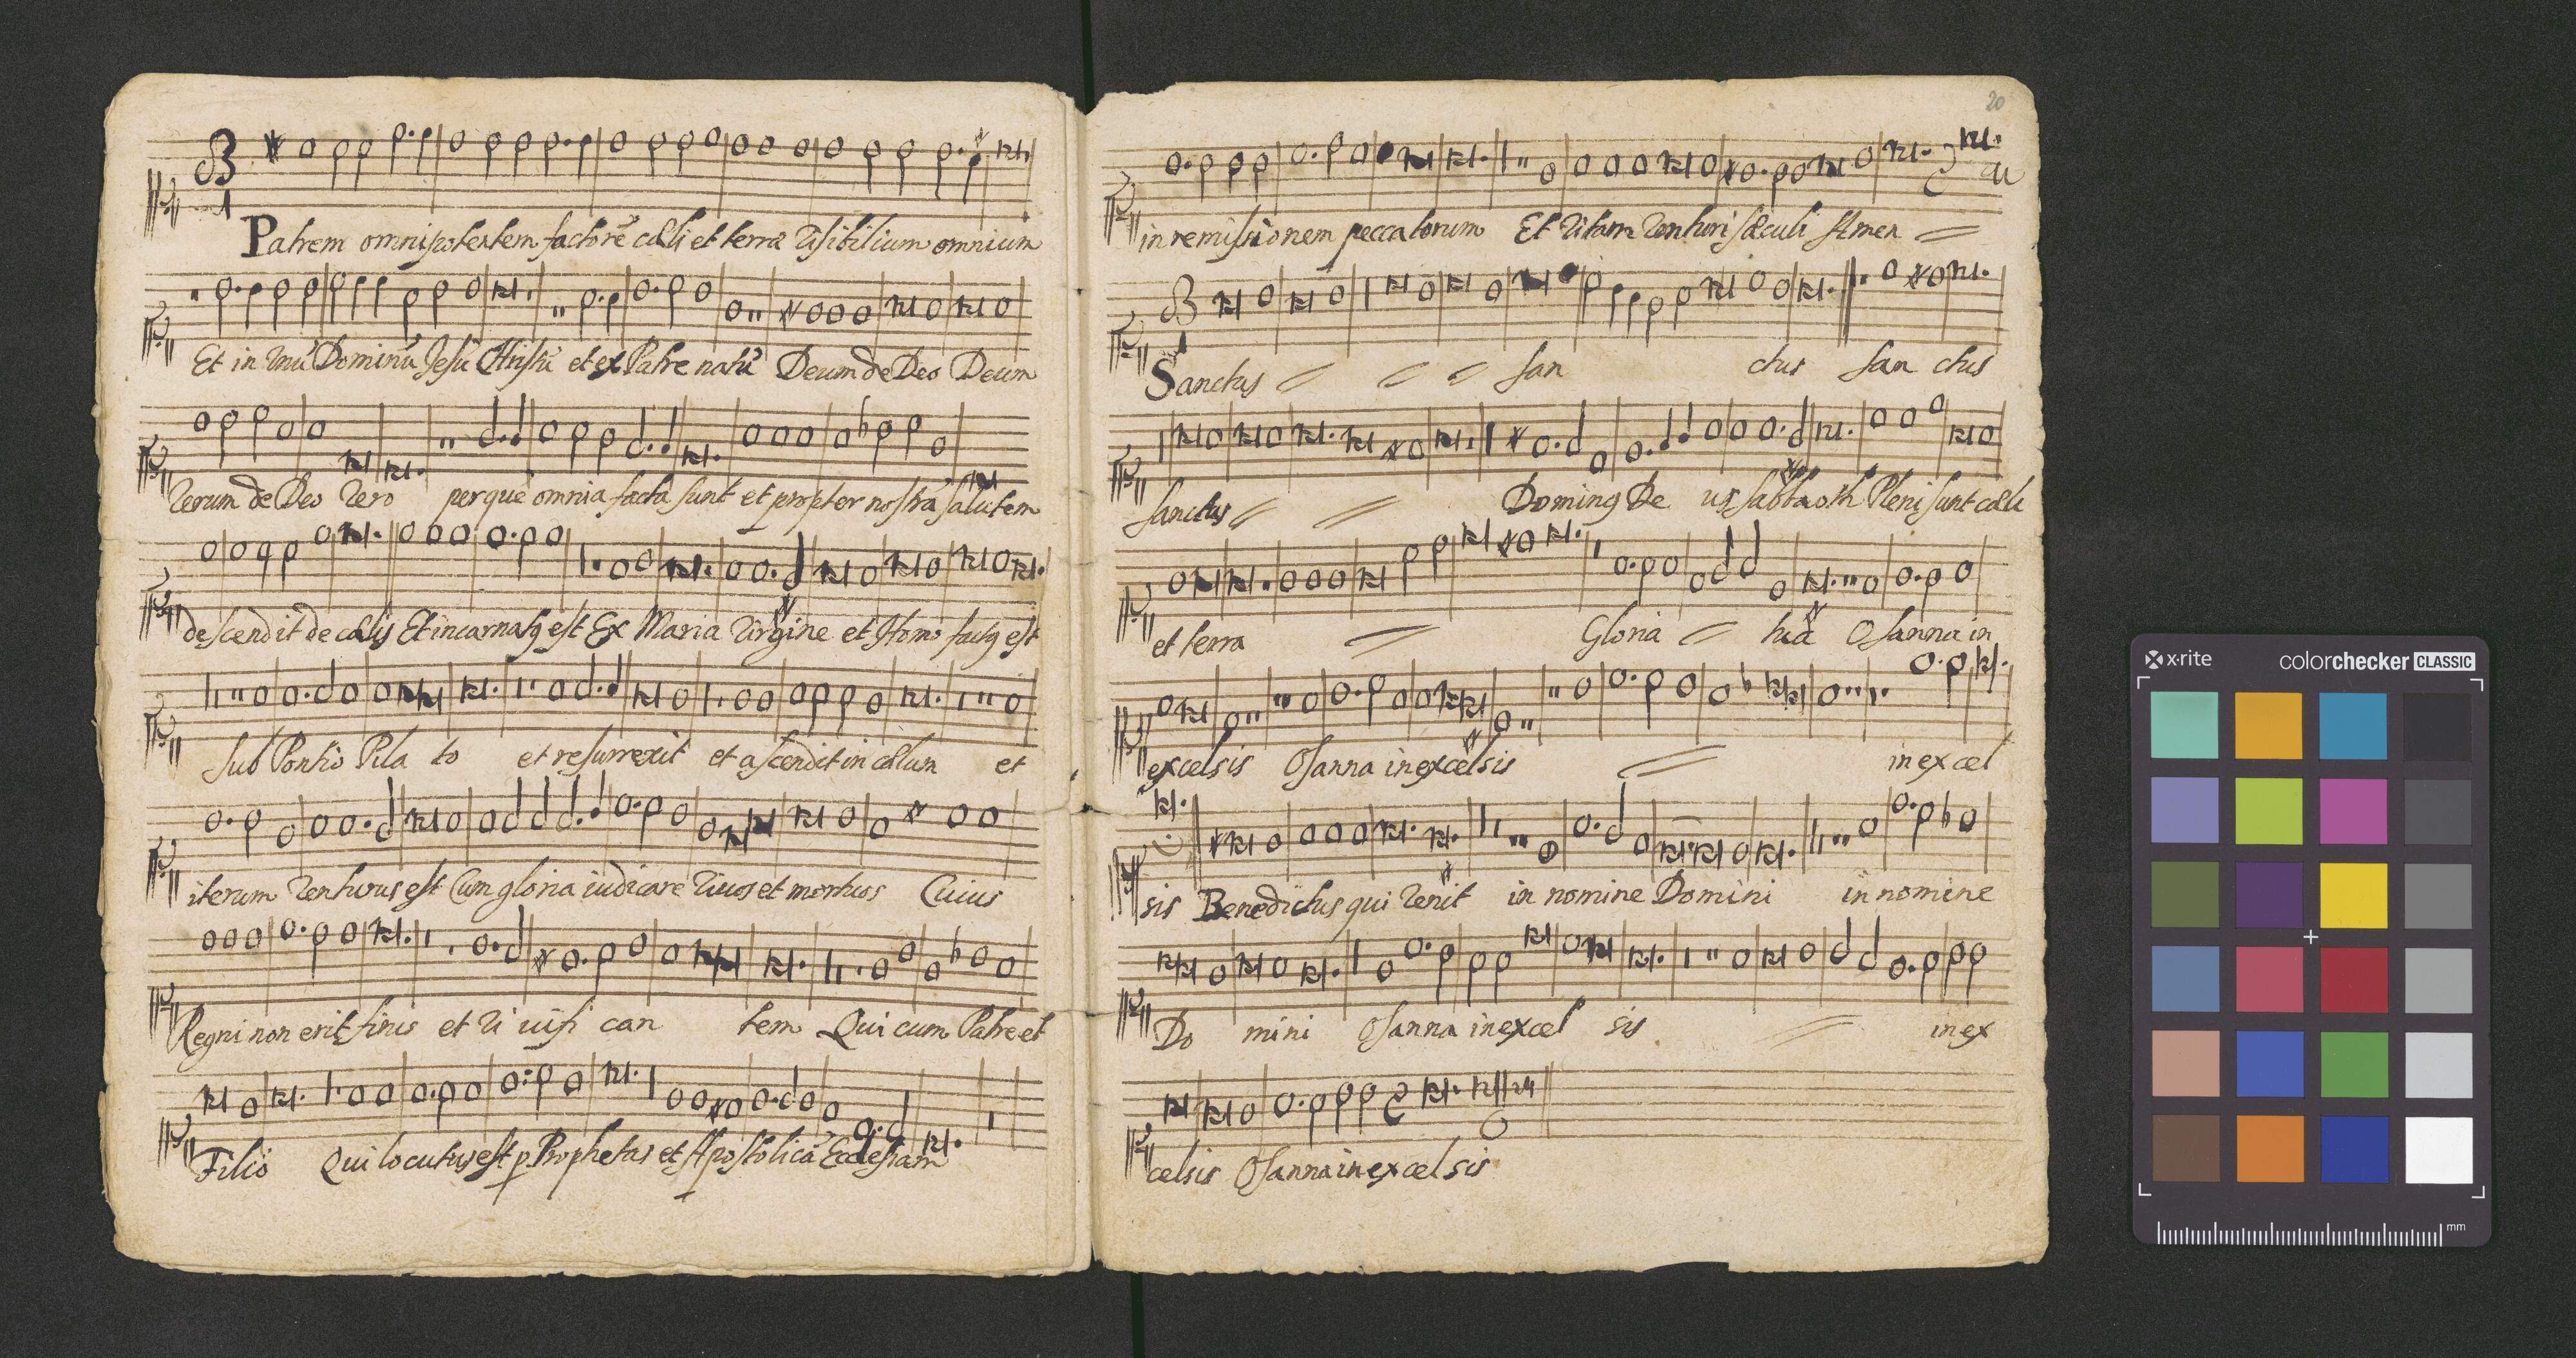 Patrem omnipotentem factorē cæli et terræ Visibilium omnium
Et in Vnū Dominū Jesū Christū et ex Patre natū Deum de Deo Deum
Verum de Deo Vero per quē omnia facta sunt et propter nostrā salutem
descendit de cælis Et incarnatꝰ est Ex Maria Virgine et Homo factꝰ est
Sub Pontio Pilato et resurrexit et ascendit in cælum et
iterum Venturus est Cum gloria iudicare Vivos et mortuos Cuius
Regni non erit finis et Vi uifi can tem Qui cum Patre et
Filio Qui locutus est p Prophetas et Apostolicā Ecclesiam
20
in remissionem peccatorum Et Vitam Venturi sæculi Amen
Sanctus san ctus san ctus
sanctus Dominꝰ De us sabbaoth Pleni sunt cæli
et terra Gloria tua Osanna in
excelsis Osanna in excelsis in excel
sis Benedictus qui Venit in nomine Domini in nomine
Do mini Osanna in excel sis in ex
celsis Osanna in excelsis
x-rite colorchecker CLASSIC
mm